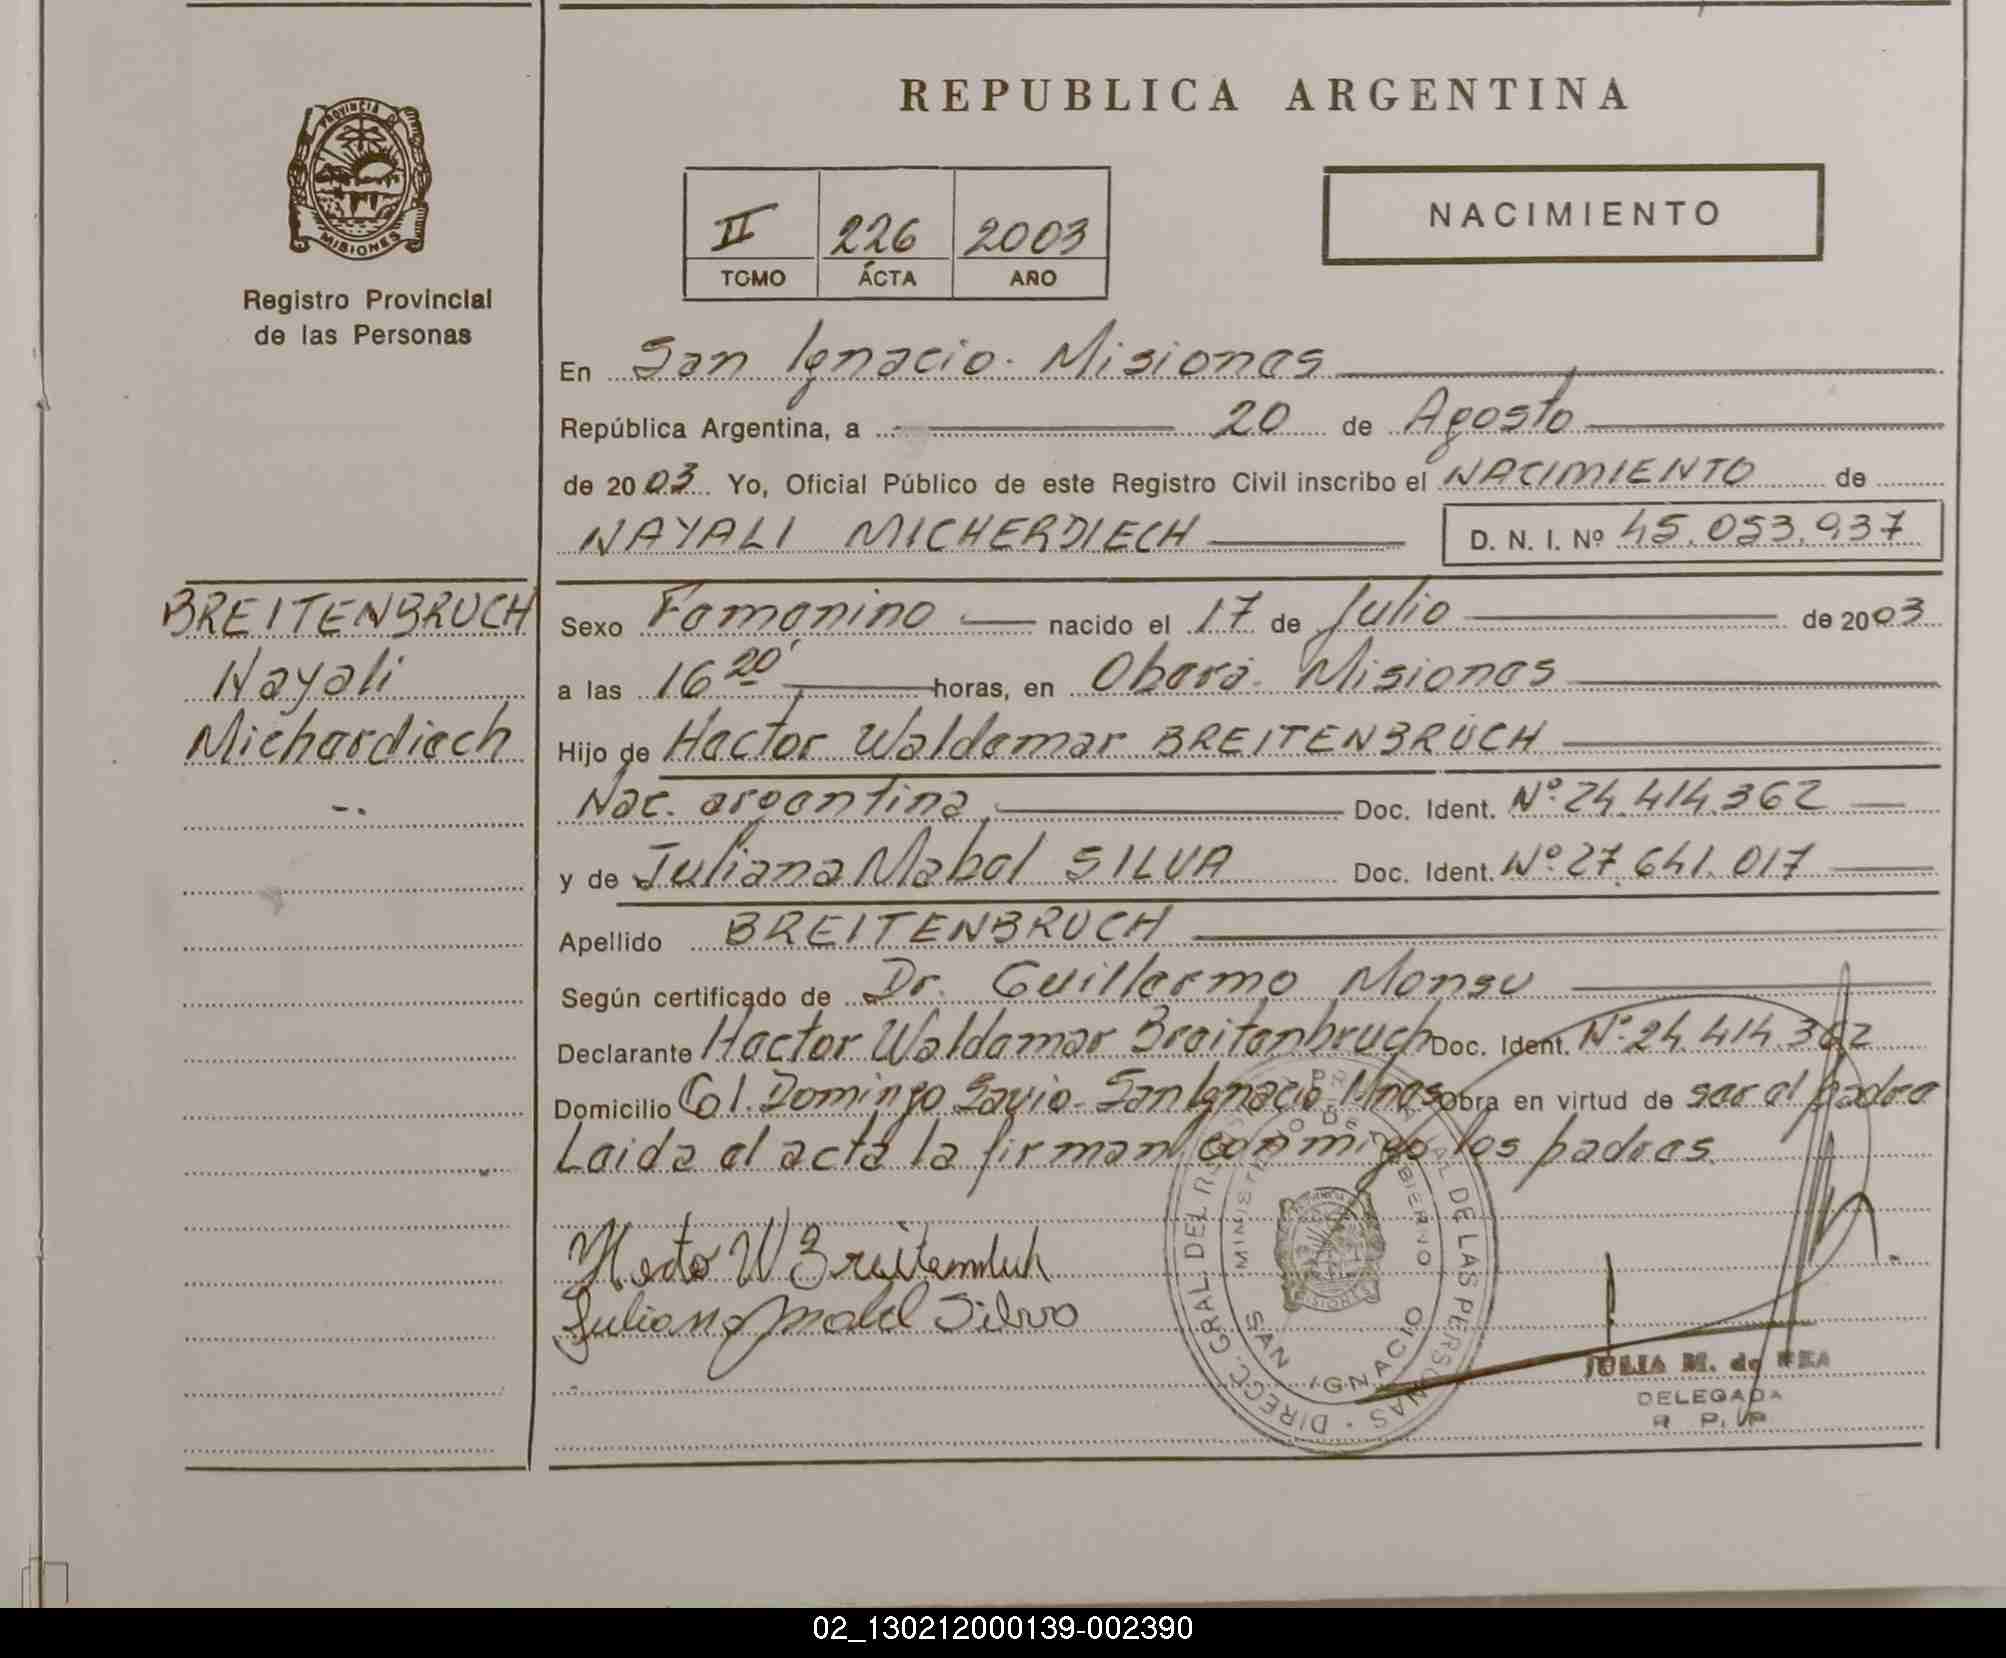 REPUBLICA ARGENTINA
PROVINCIA DE
MISIONES
Registro Provincial
de las Personas
II 226 2003
TOMO ACTA AÑO
NACIMIENTO
En San Ignacio - Misiones
República Argentina, a 20 de Agosto
de 2003 Yo, Oficial Público de este Registro Civil inscribo el NACIMIENTO de
NAYALI MICHERDIECH D. N. I. Nº 45.053.937
BREITENBRUCH
Nayali
Micherdiech
Sexo Femenino nacido el 17 de Julio de 2003
a las 16 20' horas, en Oberá - Misiones
Hijo de Hector Waldemar BREITENBRUCH
Nac. argentina Doc. Ident. Nº 24.414.362
y de Juliana Mabel SILVA Doc. Ident. Nº 27.641.017
Apellido BREITENBRUCH
Según certificado de Dr. Guillermo Monsu
Declarante Hector Waldemar Breitenbruch Doc. Ident. Nº 24.414.362
Domicilio Col. Domingo Savio - San Ignacio Mnes Obra en virtud de ser el padre
Leida el acta la firman conmigo los padres.
Hecto W Breitenbruch
Juliana Mabel Silva
DIRECC. GRAL. DEL DE LAS PERSONAS
MINISTERIO DE GOBIERNO
SAN IGNACIO
JULIA M. de
DELEGADA
R. P. P.
02_130212000139-002390